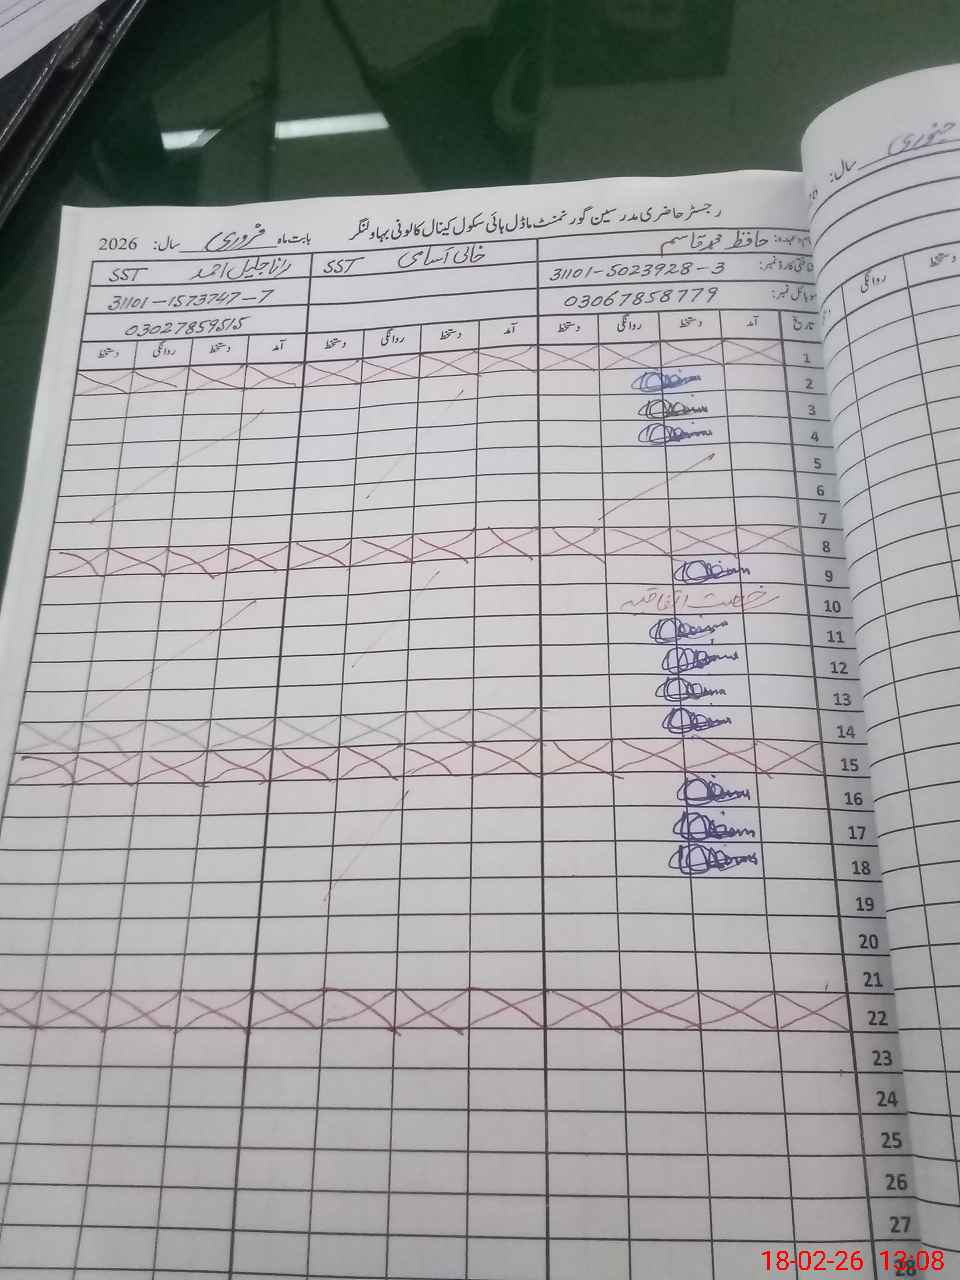 رجسٹر حاضری مدرسین گورنمنٹ ماڈل ہائی سکول کینال کالونی بہاولنگر بابت ماہ فروری سال: 2026
حافظ محمد قاسم
خالی آسامی SST
رانا جلیل احمد SST
شناختی کارڈ نمبر: 31101-5023928-3
31101-1573747-7
موبائل نمبر: 03067858779
03027859515
تاریخ آمد دستخط روانگی دستخط آمد دستخط روانگی دستخط آمد دستخط روانگی دستخط
1
2
3
4
5
6
7
8
9
10 رخصت اتفاقیہ
11
12
13
14
15
16
17
18
19
20
21
22
23
24
25
26
27
28
جنوری سال:
روانگی دستخط
18-02-26 13:08